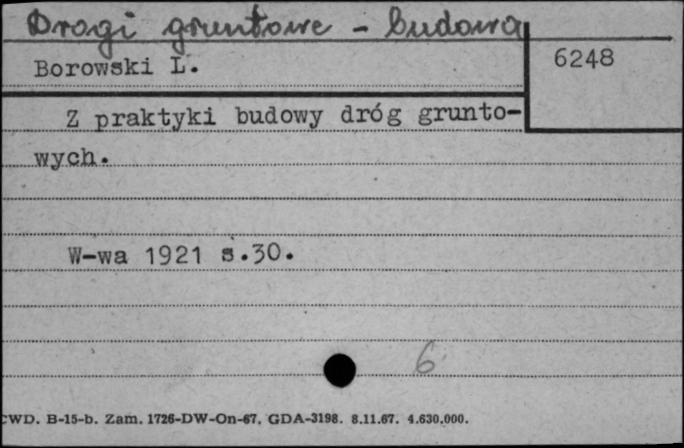 Drogi gruntowe - budowa
Borowski L.
6248
Z praktyki budowy dróg grunto-
wych.
W-wa 1921 s.30.
6
CWD. B-15-b. Zam. 1726-DW-On-67. GDA-3198. 8.11.67. 4.630.000.